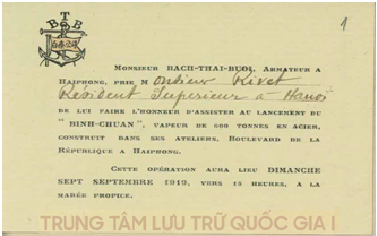 B T B
1
MONSIEUR BACH-THAI-BUOI, ARMATEUR A
HAIPHONG, PRIE Monsieur Rivet
Résident Superieur à Hanoï
DE LUI FAIRE L'HONNEUR D'ASSISTER AU LANCEMENT DU
" BINH-CHUAN", VAPEUR DE 600 TONNES EN ACIER,
CONSTRUIT DANS SES ATELIERS, BOULEVARD DE LA
RÉPUBLIQUE A HAIPHONG.
CETTE OPÉRATION AURA LIEU DIMANCHE
SEPT SEPTEMBRE 1919, VERS 15 HEURES, A LA
MARÉE PROPICE.
TRUNG TÂM LƯU TRỮ QUỐC GIA I